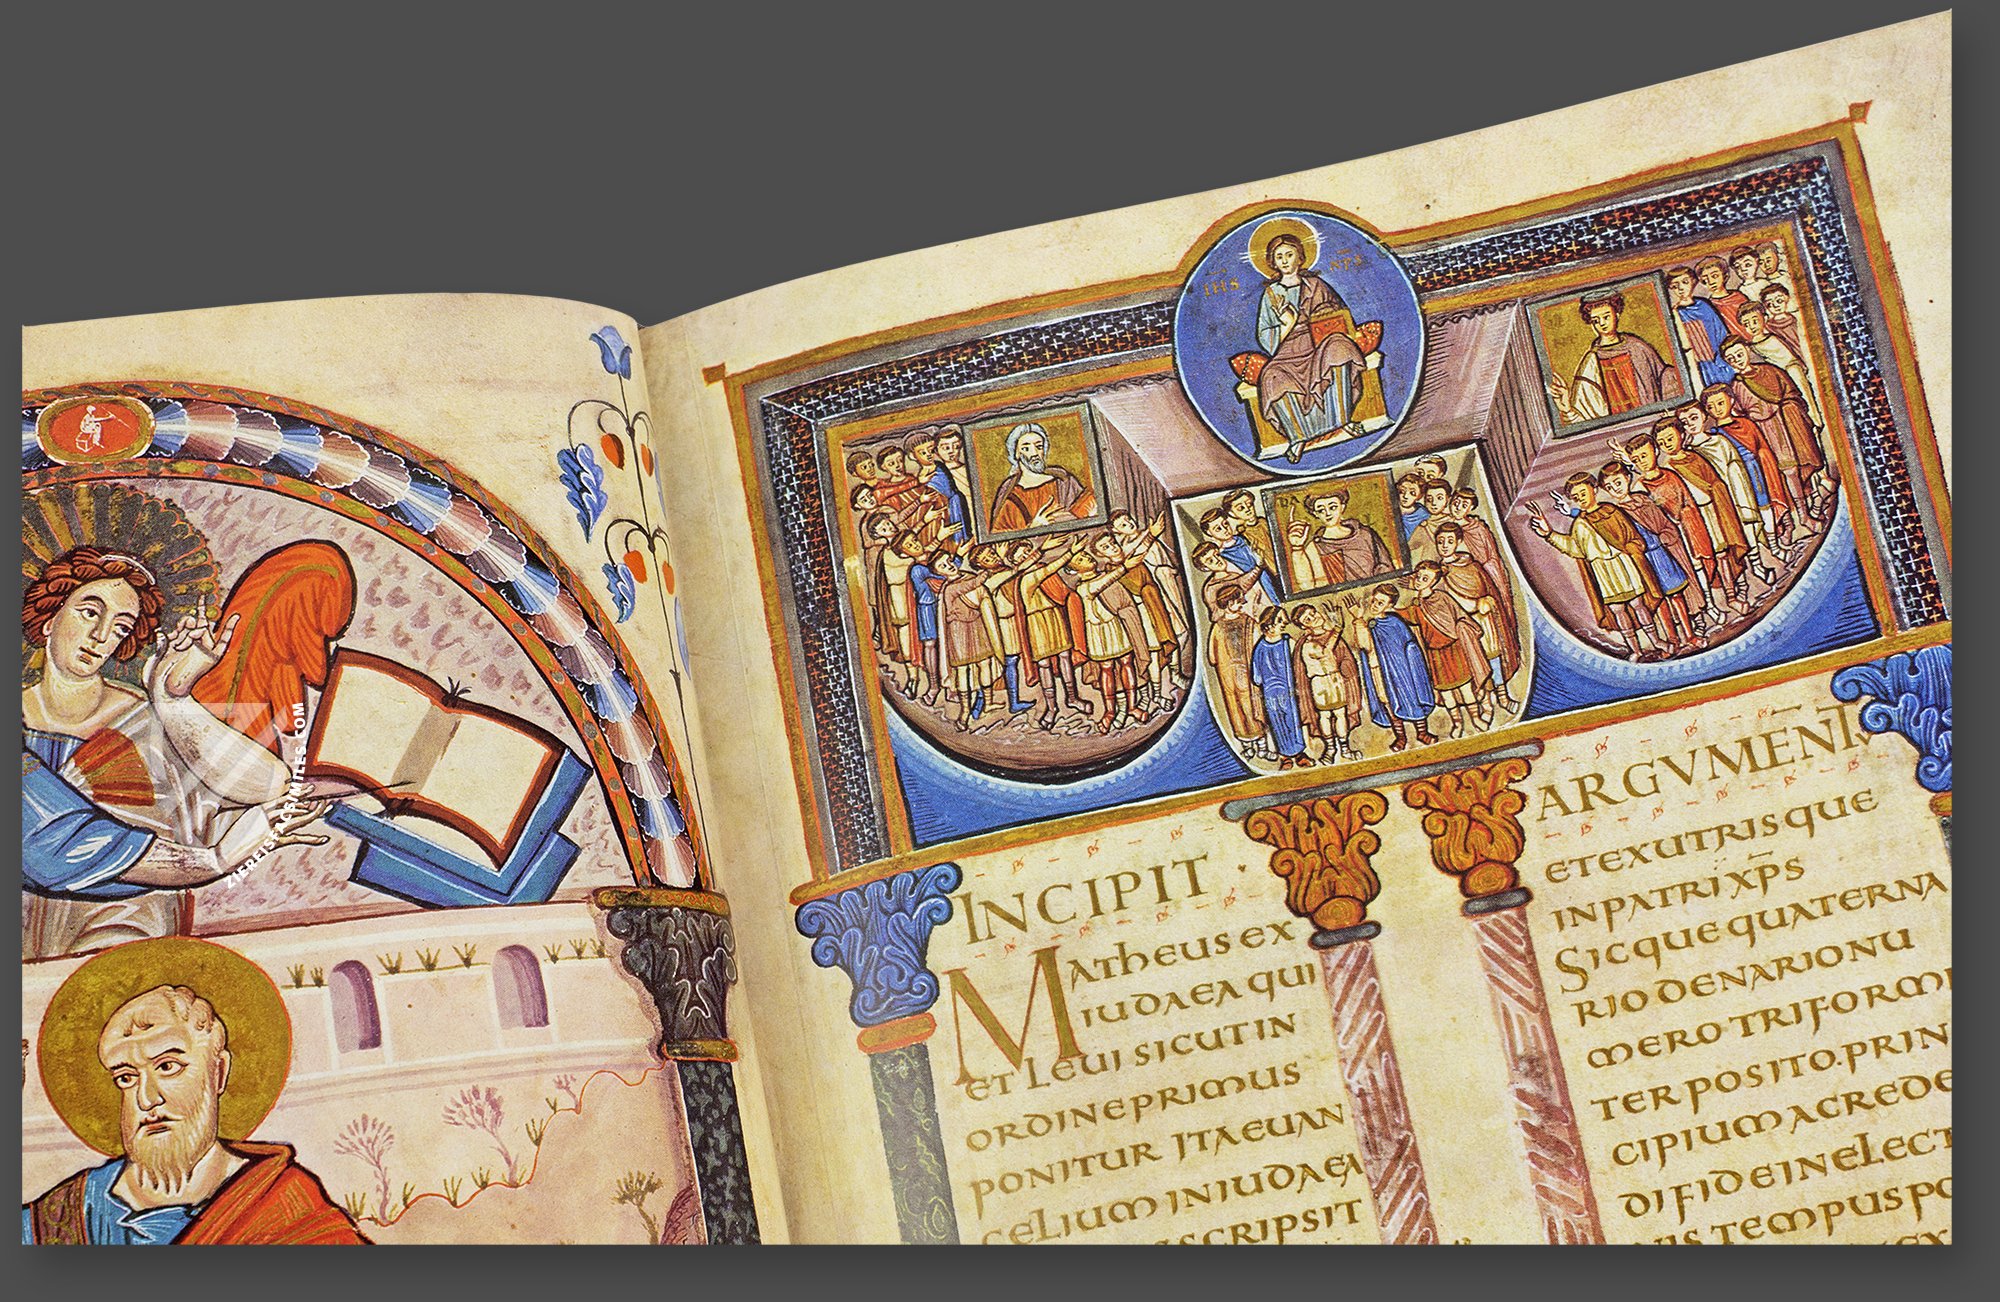 IHS XPS
DA
INCIPIT · ARGVMENT
MATHEUS EX
IUDAEA QUI
ET LEUI SICUT IN
ORDINE PRIMUS
PONITUR ITA EUAN
GELIUM IN IUDAEA
SCRIPSIT
ET EX UTRISQUE
IN PATRI XPS
SICQUE QUATERNA
RIO DENARIO NU
MERO TRIFORMI
TER POSITO. PRIN
CIPIUM A CREDE
DI FIDE IN ELECT
TEMPUS PO
ZIEREISFACSIMILES.COM